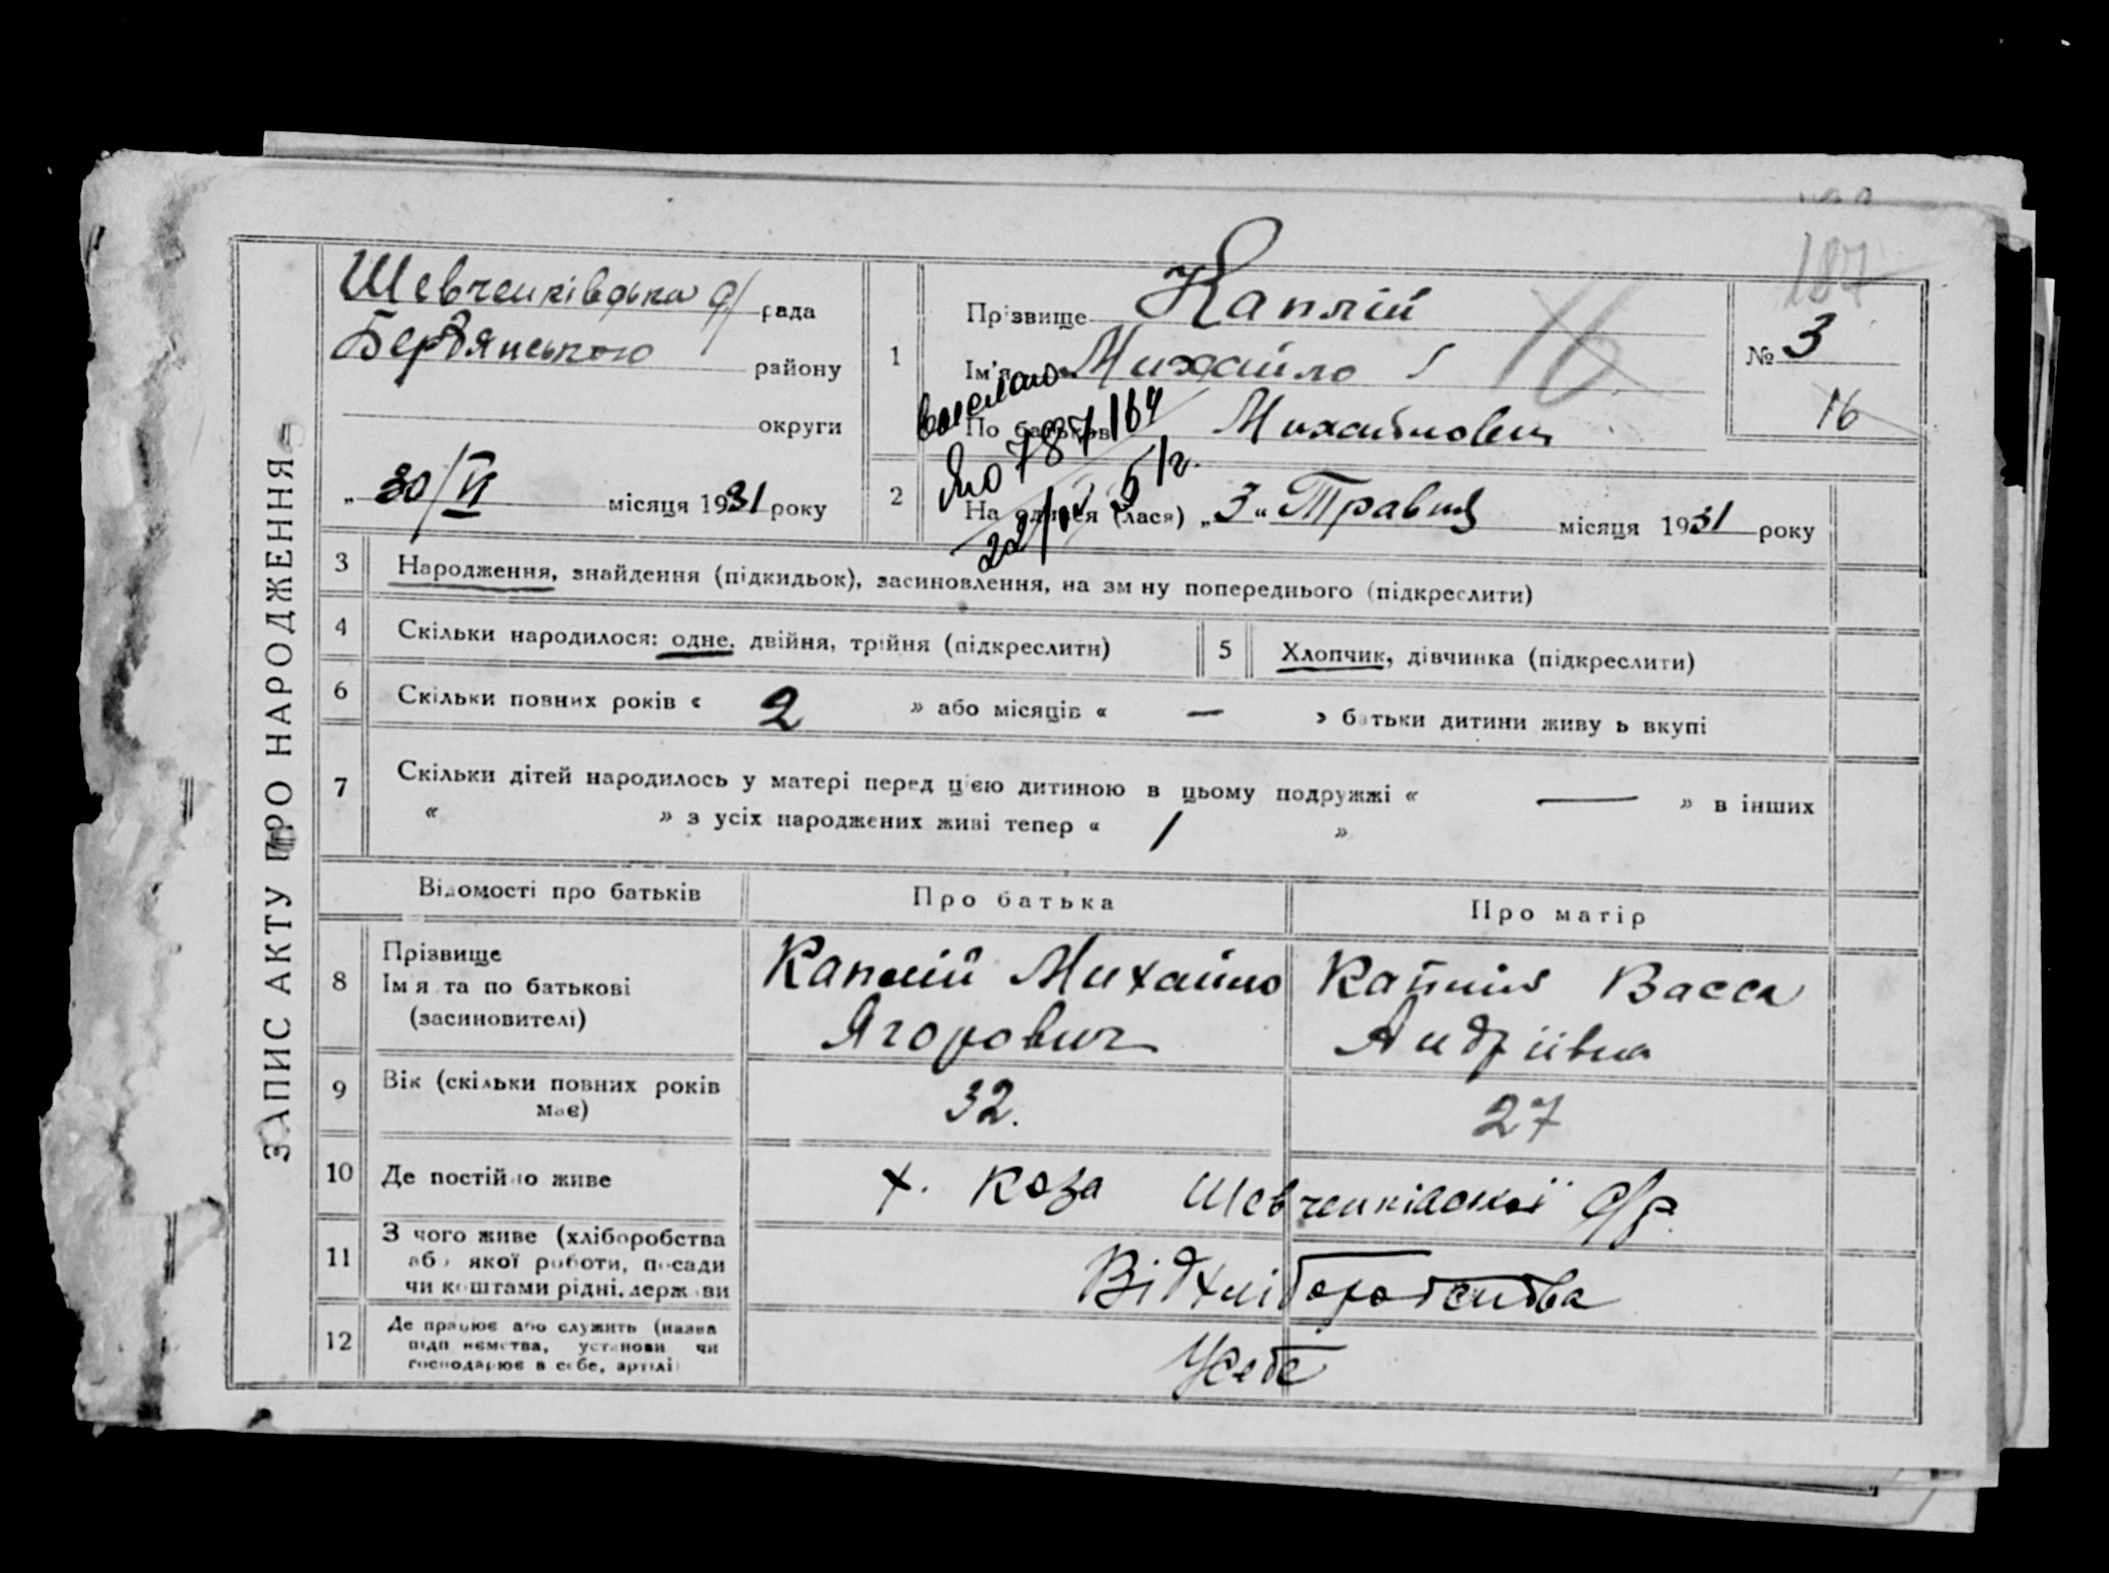 187
ЗАПИС АКТУ ПРО НАРОДЖЕННЯ
Шевченківська с/рада
Бердянського району
округи
„ 30/VI місяця 1931 року
1 Прізвище Каплій
Ім'я Михайло
По батькові Михайлович
16
№ 3
16
2 На одився (лася) „3“ Травня місяця 1931 року
выслано
787164
22/IV 51г.
3 Народження, знайдення (підкидьок), засиновлення, на зм ну попереднього (підкреслити)
4 Скільки народилося: одне, двійня, трійня (підкреслити)
5 Хлопчик, дівчинка (підкреслити)
6 Скільки повних років « 2 » або місяців « — » батьки дитини живу ь вкупі
7 Скільки дітей народилось у матері перед цією дитиною в цьому подружжі « — » в інших
« » з усіх народжених живі тепер « 1 »
Відомості про батьків Про батька Про матір
8 Прізвище
Ім я та по батькові
(засиновителі)
Каплій Михайло
Ягорович
Каплій Васса
Андріївна
9 Вік (скільки повних років
має)
32. 27
10 Де постійно живе х. Коза Шевченківської с/р.
11 З чого живе (хліборобства
або якої роботи, посади
чи коштами рідні, держави
Від хліборобства
12 Де працює або служить (назва
підп иємства, установи чи
господарює в себе, артілі
У себе